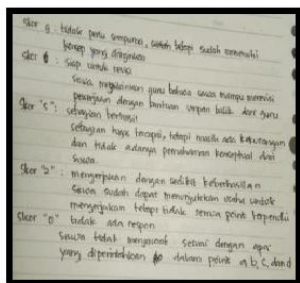 Skor 8 : tidak perlu sempurna, tetapi sudah memenuhi
konsep yang diinginkan
Skor 6 : siap untuk revisi
Siswa meyakinkan guru bahwa siswa mampu merevisi
pekerjaan dengan bantuan umpan balik dari guru
Skor "5" : sebagian berhasil
sebagian harus tercapai, tetapi masih ada kekurangan
dan tidak adanya pemahaman konseptual dari
siswa.
Skor "2" : mengerjakan dengan sedikit keberhasilan
Siswa sudah dapat menunjukkan usaha untuk
mengerjakan tetapi tidak semua point terpenuhi
Skor "0" tidak ada respon
Siswa tidak menjawab sesuai dengan apa
yang diperintahkan dalam point a, b, c, dan d